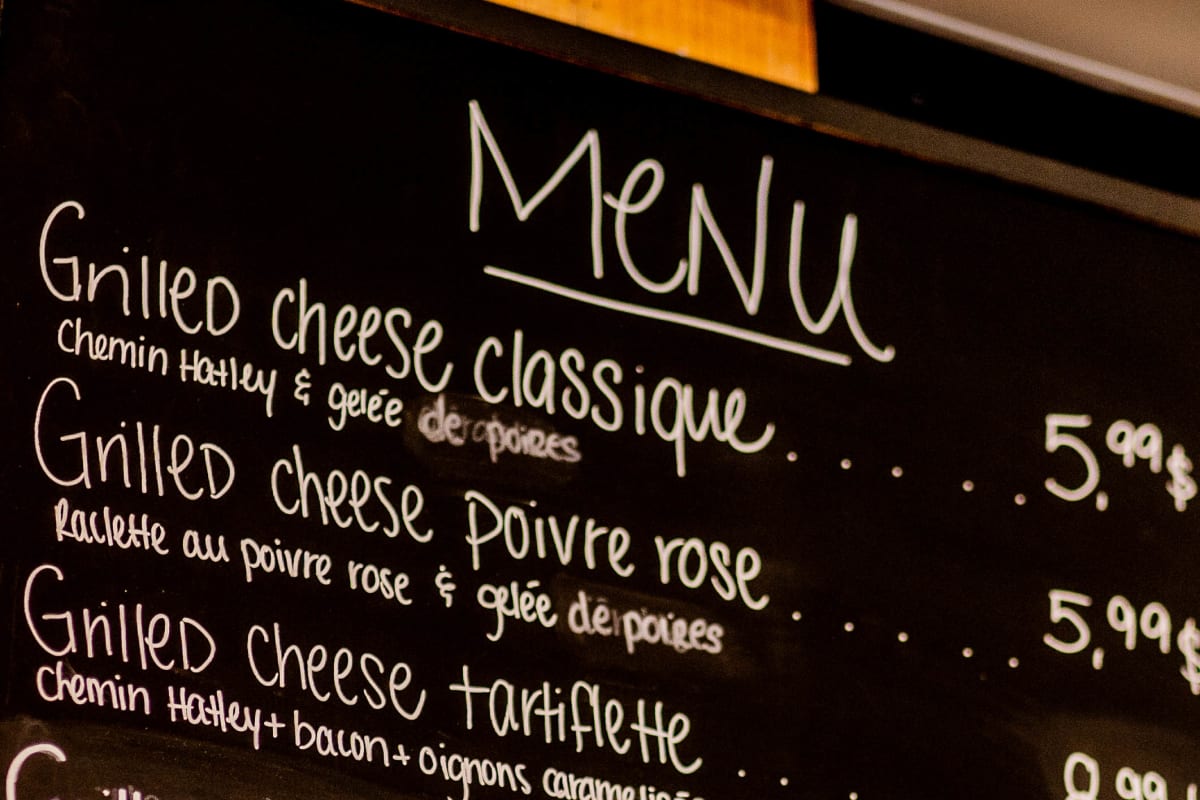 MENU
Grilled cheese classique . . . . . 5,99$
Chemin Hatley & gelée de poires
Grilled cheese poivre rose . . . . . 5,99$
Raclette au poivre rose & gelée de poires
Grilled cheese tartiflette . . . 8,99
Chemin Hatley + bacon + oignons caramelisés